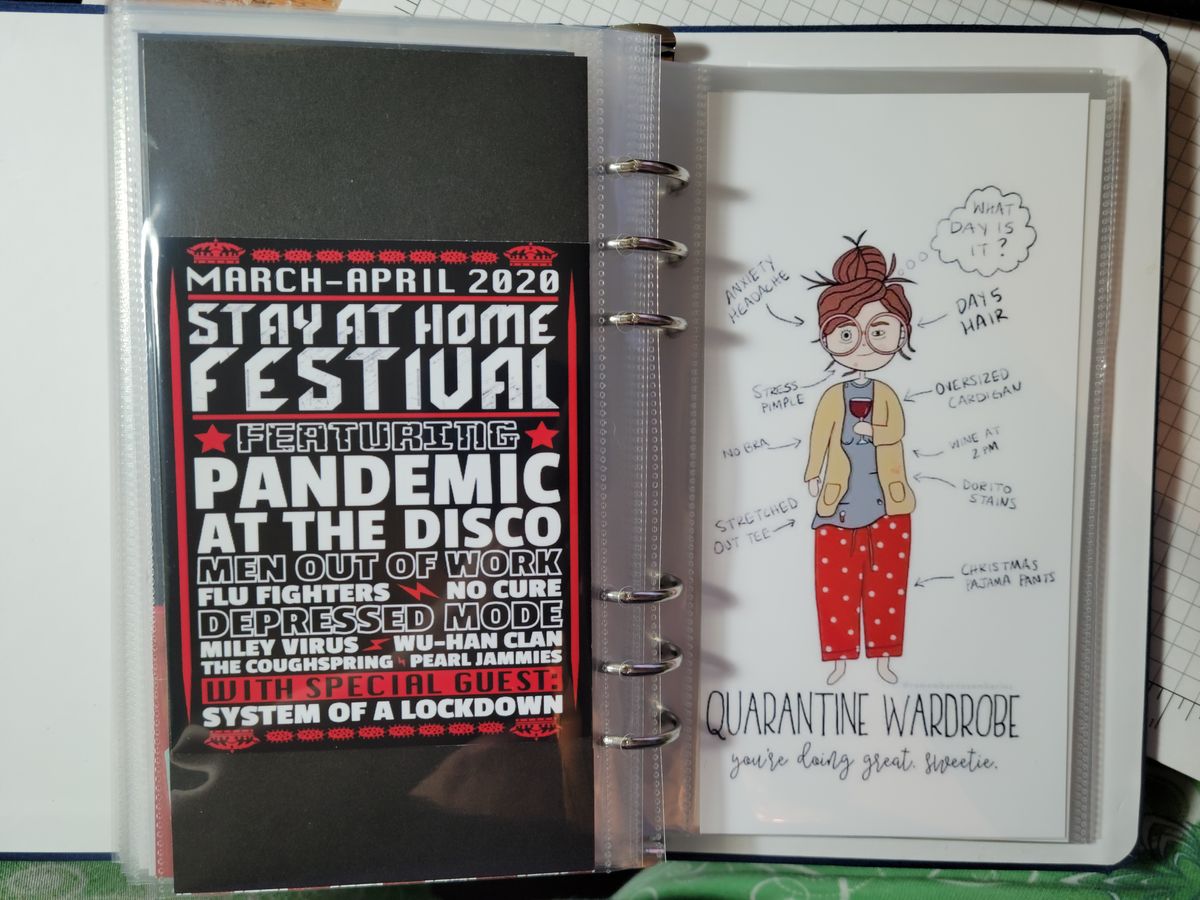 MARCH-APRIL 2020
STAY AT HOME
FESTIVAL
FEATURING
PANDEMIC
AT THE DISCO
MEN OUT OF WORK
FLU FIGHTERS NO CURE
DEPRESSED MODE
MILEY VIRUS WU-HAN CLAN
THE COUGHSPRING PEARL JAMMIES
WITH SPECIAL GUEST:
SYSTEM OF A LOCKDOWN
WHAT
DAY IS
IT?
ANXIETY
HEADACHE
DAY 5
HAIR
STRESS
PIMPLE
OVERSIZED
CARDIGAN
NO BRA
WINE AT
2PM
DORITO
STAINS
STRETCHED
OUT TEE
CHRISTMAS
PAJAMA PANTS
QUARANTINE WARDROBE
you're doing great. sweetie.